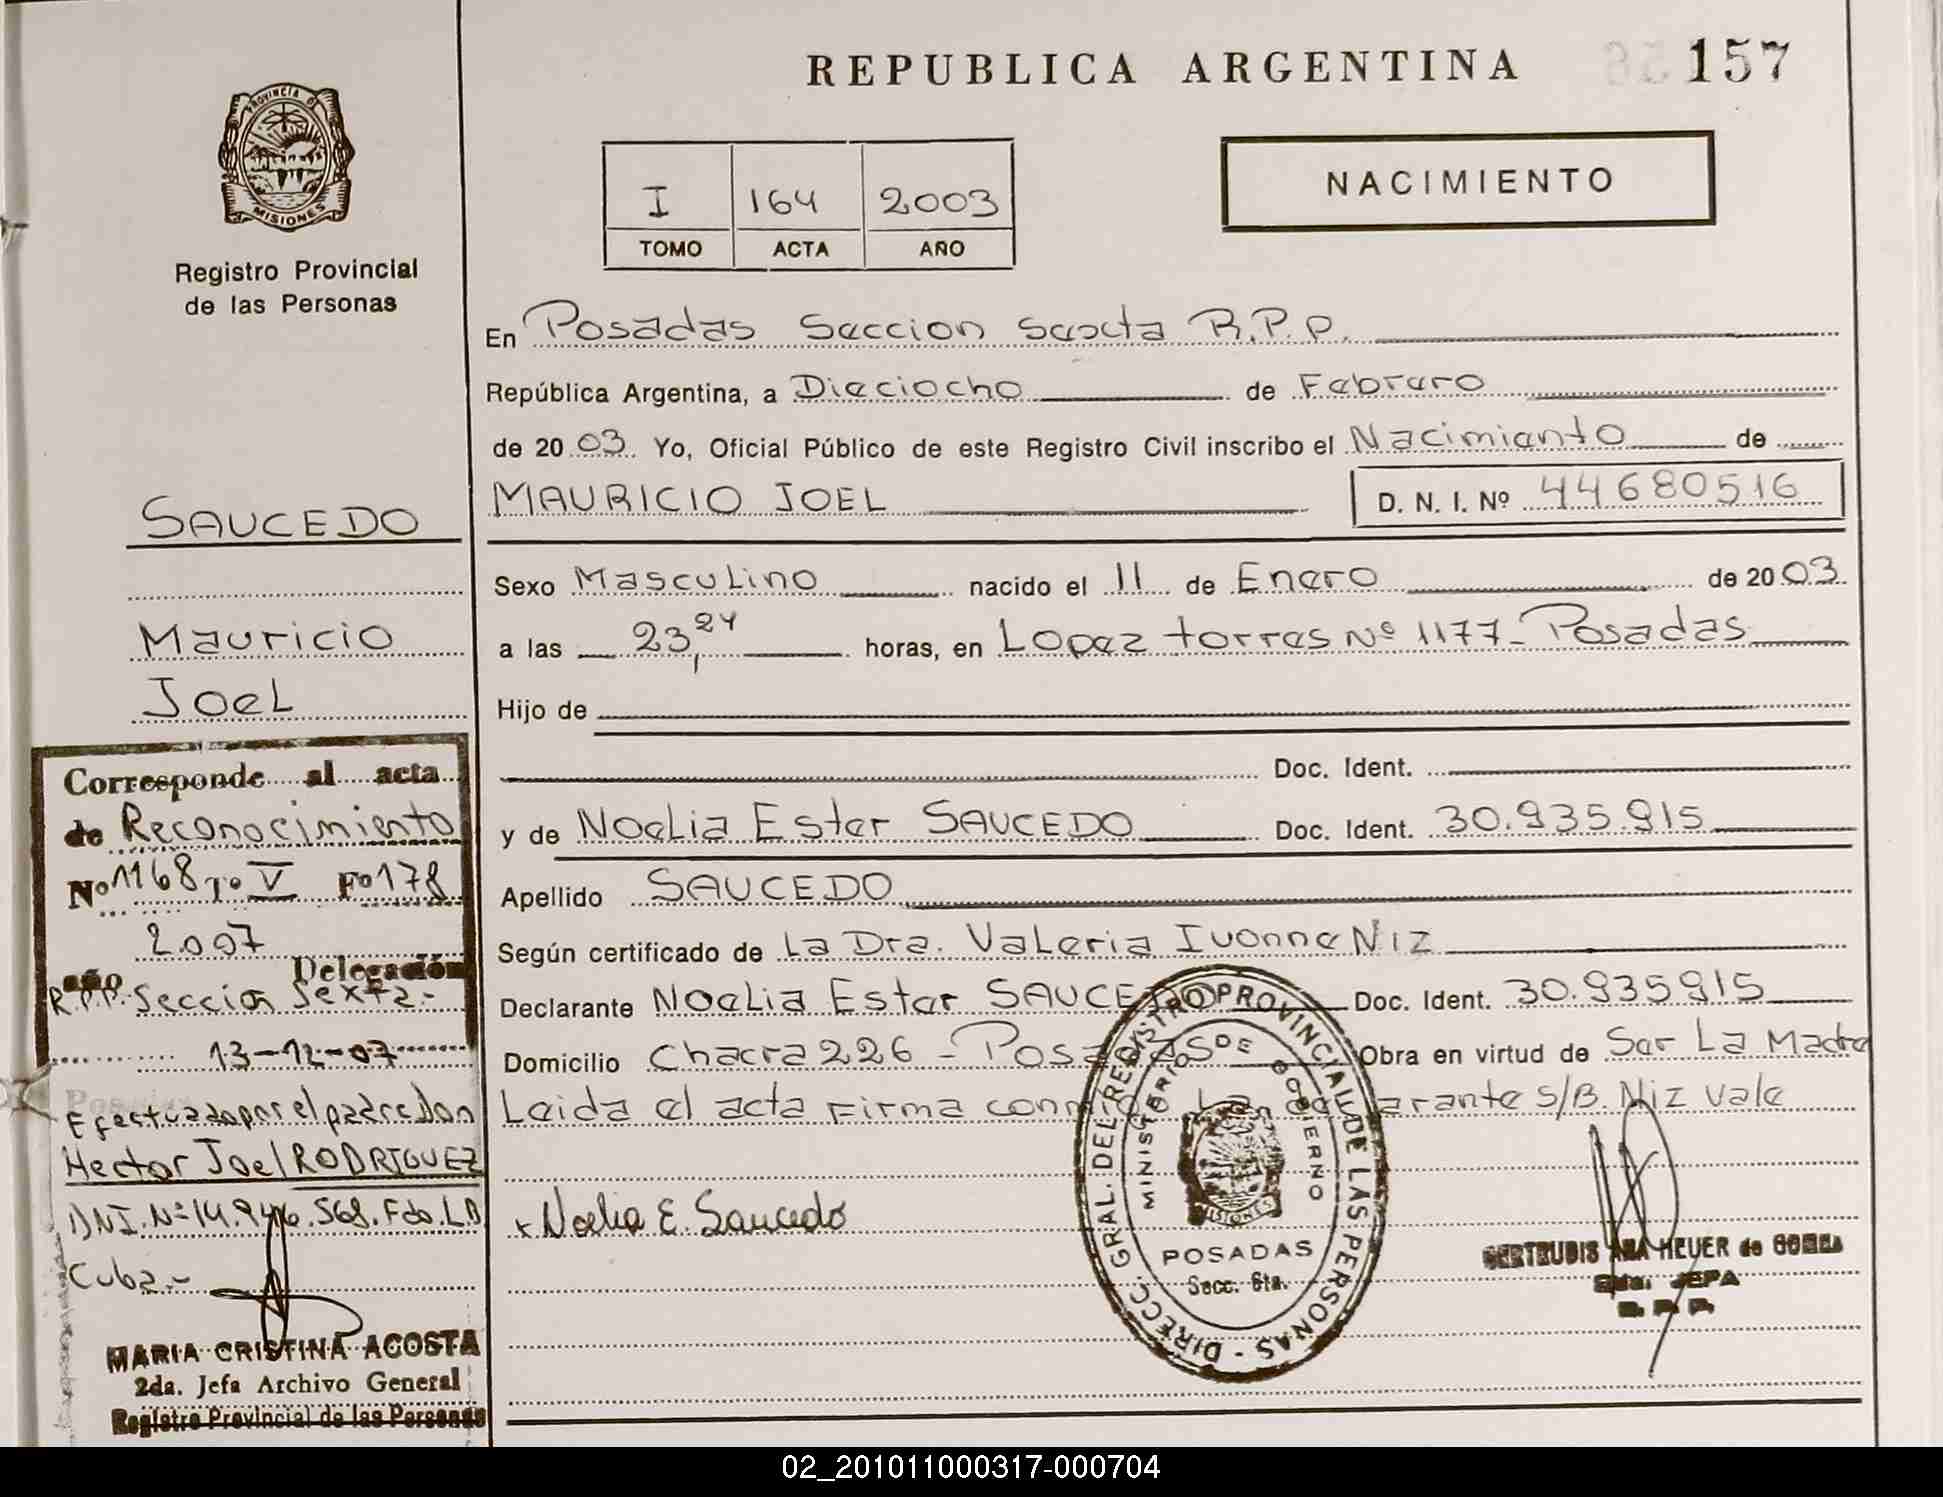 REPUBLICA ARGENTINA
157
PROVINCIA DE
MISIONES
Registro Provincial
de las Personas
I 164 2003
TOMO ACTA AÑO
NACIMIENTO
En Posadas Seccion Sexta R.P.P.
República Argentina, a Dieciocho de Febrero
de 2003 Yo, Oficial Público de este Registro Civil inscribo el Nacimiento de
MAURICIO JOEL D. N. I. Nº 44680516
Sexo Masculino nacido el 11 de Enero de 2003
a las 23,24 horas, en Lopez torres Nº 1177 - Posadas
Hijo de
Doc. Ident.
y de Noelia Ester SAUCEDO Doc. Ident. 30.935.915
Apellido SAUCEDO
Según certificado de La Dra. Valeria Ivonne Niz
Declarante Noelia Ester SAUCEDO Doc. Ident. 30.935915
Domicilio Chacra 226 - Posadas Obra en virtud de Ser La Madre
Leida el acta Firma conmigo La declarante S/B. Niz Vale
x Noelia E. Saucedo
DIRECC. GRAL. DEL REGISTRO PROVINCIAL DE LAS PERSONAS -
MINISTERIO DE GOBIERNO
MISIONES
POSADAS
Secc. 6ta.
GERTRUDIS ANA HEUER de
2da. JEFA
R. P. P.
SAUCEDO
Mauricio
Joel
Corresponde al acta
de Reconocimiento
Nº 1168 Tº V Fº 178
2007
año Delegación
R.P.P. Seccion Sexta.-
13-12-07
Posadas
Efectuado por el padre Don
Hector Joel RODRIGUEZ
DNI. Nº 14.946.568. Fdo. L.A
Cuba.-
MARIA CRISTINA ACOSTA
2da. Jefa Archivo General
Registro Provincial de las Personas
02_201011000317-000704